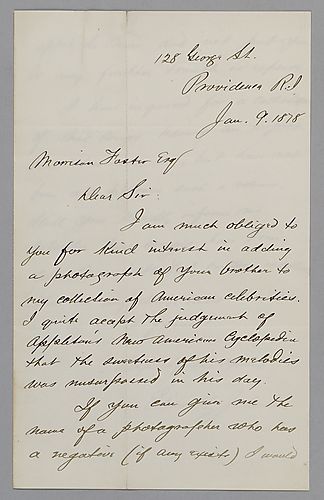 128 George St.
Providence R.I
Jan. 9. 1878
Morrison Foster Esq
Dear Sir:
I am much obliged to
you for kind interest in adding
a photograph of your brother to
my collection of American celebrities.
I quite accept the judgement of
Appletons New American Cyclopedia
that the sweetness of his melodies
was unsurpassed in his day.
If you can give me the
name of a photographer who has
a negative (if any exists) I would